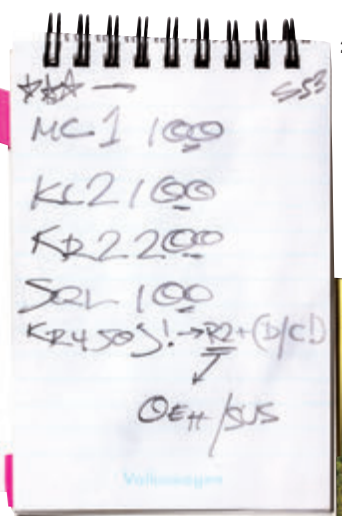 ☆☆☆ —
MC1 100
KC2 100
KR2 200
SQL 100
KR4 SOS! → R2 + (D/C!)
OEH/SUS
Volkswagen